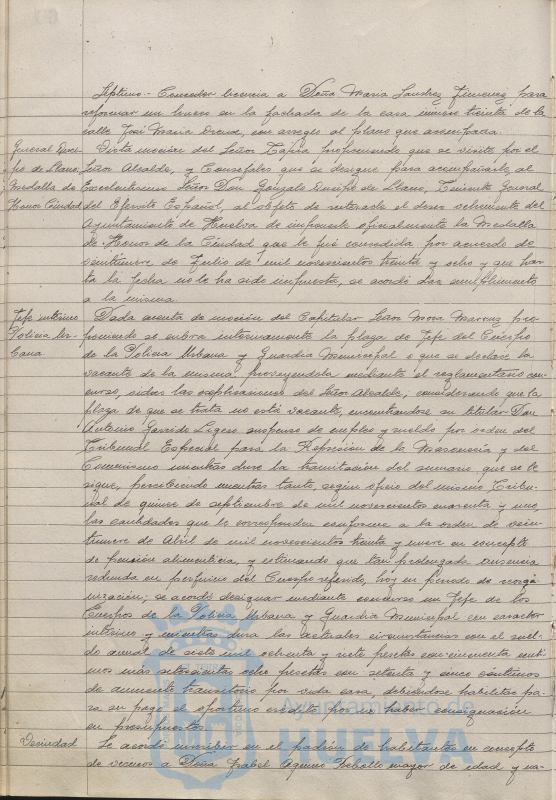 Séptimo.- Conceder licencia a Doña María Sánchez Jiménez para
reformar un hueco en la fachada de la casa número treinta de la
calle José María Orense, con arreglo al plano que acompaña.
General Quei-
po de Llano,
Medalla de
Honor Ciudad
Vista moción del Señor Tapia proponiendo que se visite por el
Señor Alcalde, y Concejales que se designe para acompañarle, al
Excelentísimo Señor Don Gonzalo Queipo de Llano, Teniente General
del Ejército Español, al objeto de interesarle el deseo vehemente del
Ayuntamiento de Huelva de imponerle oficialmente la Medalla
de Honor de la Ciudad que le fué concedida por acuerdo de
veintiuno de Julio de mil novecientos treinta y ocho y que has-
ta la fecha no le ha sido impuesta, se acordó dar cumplimiento
a la misma.
Jefe interino
Policía Ur-
bana
Dada cuenta de moción del Capitular Señor Mora Marcuz pro-
poniendo se cubra interinamente la plaza de Jefe del Cuerpo
de la Policía Urbana y Guardia Municipal o que se declare la
vacante de la misma proveyéndola mediante el reglamentario con-
curso, oidas las explicaciones del Señor Alcalde, considerando que la
plaza de que se trata no está vacante, encontrándose su titular Don
Antonio Garrido Ligero suspenso de empleo y sueldo por orden del
Tribunal Especial para la Represión de la Masonería y del
Comunismo mientras dure la tramitación del sumario que se le
sigue, percibiendo mientras tanto, según oficio del mismo Tribu-
nal de quince de septiembre de mil novecientos cuarenta y uno,
las cantidades que le corresponden conforme a la orden de vein-
tinueve de Abril de mil novecientos treinta y nueve en concepto
de pensión alimenticia, y estimando que tan prolongada ausencia
redunda en perjuicio del Cuerpo referido, hoy en período de reorga-
nización; se acordó designar mediante concurso un Jefe de los
Cuerpos de la Policía Urbana y Guardia Municipal con carácter
interino y mientras dura las actuales circunstancias con el suel-
do anual de siete mil ochenta y siete pesetas con cincuenta cénti-
mos más setecientas ocho pesetas con setenta y cinco céntimos
de aumento transitorio por vida cara, debiéndose habilitar pa-
ra su pago el oportuno crédito por no haber consignación
en presupuestos.
Vecindad
Se acordó inscribir en el padrón de habitantes en concepto
de vecinos a Doña Isabel Aquino Rebollo mayor de edad y na-
Ayuntamiento de
HUELVA